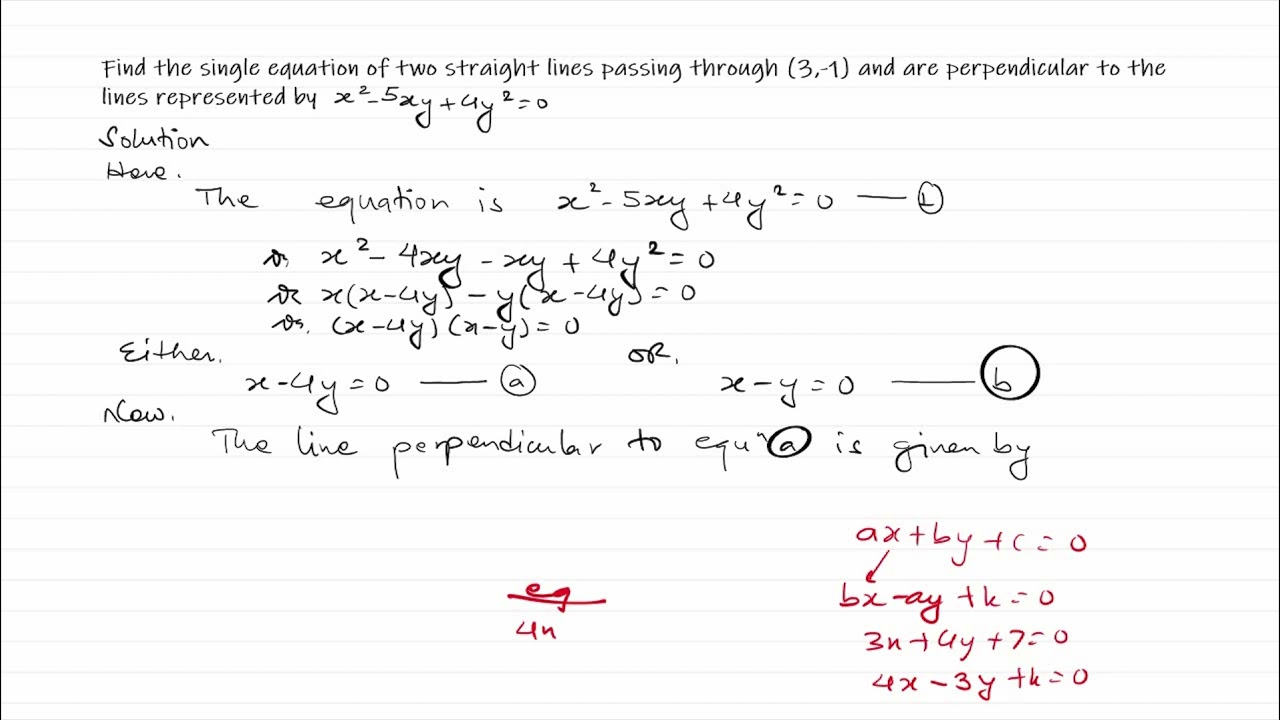 Find the single equation of two straight lines passing through (3,-1) and are perpendicular to the
lines represented by x²-5xy+4y²=0
Solution
Here.
The equation is x²-5xy+4y²=0 — ①
or, x²-4xy-xy+4y²=0
or x(x-4y)-y(x-4y)=0
or, (x-4y)(x-y)=0
Either. OR,
x-4y=0 — ⓐ x-y=0 — ⓑ
Now.
The line perpendicular to equⁿ ⓐ is given by
ax+by+c=0
eg bx-ay+k=0
4x 3x+4y+7=0
4x-3y+k=0